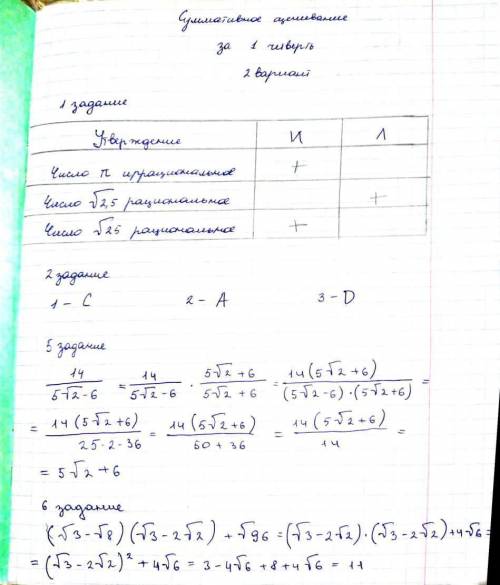 Суммативное оценивание
за 1 четверть
2 вариант
1 задание
Утверждение И Л
Число π иррациональное +
Число √2,5 рациональное +
Число √25 рациональное +
2 задание
1 – C 2 – A 3 – D
5 задание
14/(5√2-6) = 14/(5√2-6) · (5√2+6)/(5√2+6) = 14(5√2+6)/((5√2-6)·(5√2+6)) =
= 14(5√2+6)/(25·2-36) = 14(5√2+6)/(50+36) = 14(5√2+6)/14 =
= 5√2+6
6 задание
(√3-√8)(√3-2√2)+√96=(√3-2√2)·(√3-2√2)+4√6=
=(√3-2√2)²+4√6=3-4√6+8+4√6=11